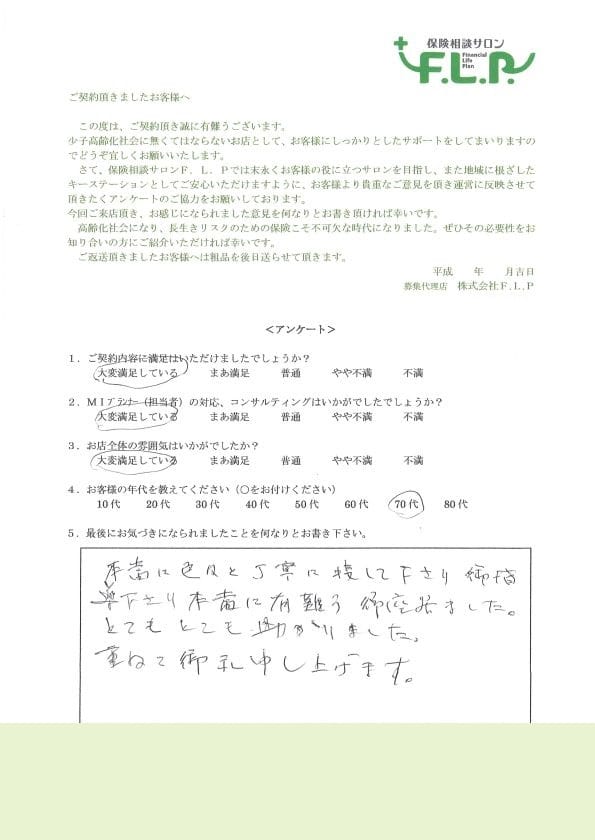 保険相談サロン
F.L.P.
Financial
Life
Plan
ご契約頂きましたお客様へ
この度は、ご契約頂き誠に有難うございます。
少子高齢化社会に無くてはならないお店として、お客様にしっかりとしたサポートをしてまいりますの
でどうぞ宜しくお願いいたします。
さて、保険相談サロンF．L．Pでは末永くお客様の役に立つサロンを目指し、また地域に根ざした
キーステーションとしてご安心いただけますように、お客様より貴重なご意見を頂き運営に反映させて
頂きたくアンケートのご協力をお願いしております。
今回ご来店頂き、お感じになられました意見を何なりとお書き頂ければ幸いです。
高齢化社会になり、長生きリスクのための保険こそ不可欠な時代になりました。ぜひその必要性をお
知り合いの方にご紹介いただければ幸いです。
ご返送頂きましたお客様へは粗品を後日送らせて頂きます。
平成　年　月吉日
募集代理店　株式会社F.L.P
＜アンケート＞
１．ご契約内容に満足はいただけましたでしょうか？
大変満足している　まあ満足　普通　やや不満　不満
２．MIプランナー（担当者）の対応、コンサルティングはいかがでしたでしょうか？
大変満足している　まあ満足　普通　やや不満　不満
３．お店全体の雰囲気はいかがでしたか？
大変満足している　まあ満足　普通　やや不満　不満
４．お客様の年代を教えてください（○をお付けください）
10代　20代　30代　40代　50代　60代　70代　80代
５．最後にお気づきになられましたことを何なりとお書き下さい。
本当に色々と丁寧に接して下さり御指
導下さり本当に有難う御座居ました。
とてもとても助かりました。
重ねて御礼申し上げます。